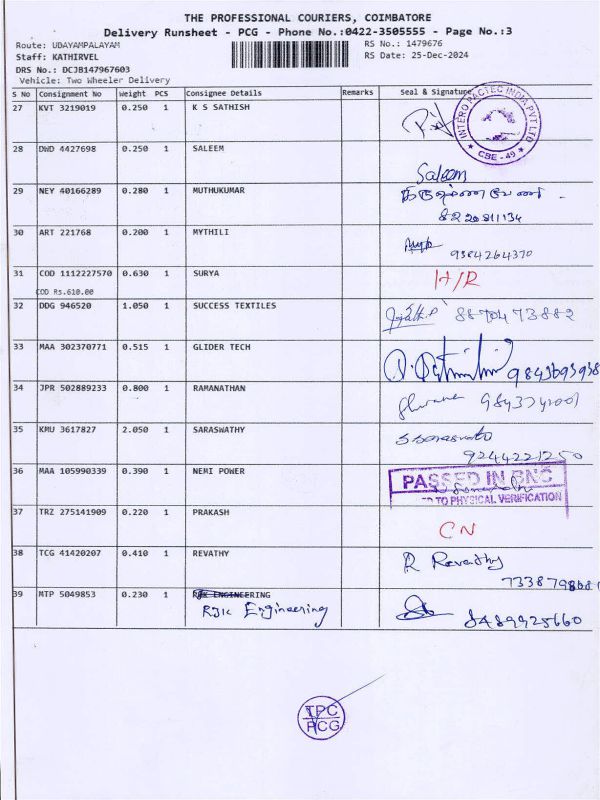 THE PROFESSIONAL COURIERS, COIMBATORE
Delivery Runsheet - PCG - Phone No.:0422-3505555 - Page No.:3
Route: UDAYAMPALAYAM RS No.: 1479676
Staff: KATHIRVEL RS Date: 25-Dec-2024
DRS No.: DCJB147967603
Vehicle: Two Wheeler Delivery
S No Consignment No Weight PCS Consignee Details Remarks Seal & Signature
27 KVT 3219019 0.250 1 K S SATHISH
INTERO PACTEC INDIA PVT LTD
CBE - 49
28 DWD 4427698 0.250 1 SALEEM
Saleem
29 NEY 40166289 0.280 1 MUTHUKUMAR
30 ART 221768 0.200 1 MYTHILI
9384264370
31 COD 1112227570 0.630 1 SURYA H/R
COD Rs.610.00
32 DDG 946520 1.050 1 SUCCESS TEXTILES
8870473882
33 MAA 302370771 0.515 1 GLIDER TECH
34 JPR 502889233 0.800 1 RAMANATHAN
35 KMU 3617827 2.050 1 SARASWATHY
9244221250
36 MAA 105990339 0.390 1 NEMI POWER
PASSED IN BNC
TO PHYSICAL VERIFICATION
37 TRZ 275141909 0.220 1 PRAKASH
CN
38 TCG 41420207 0.410 1 REVATHY
R Revathy
39 MTP 5049853 0.230 1 RJK ENGINEERING
RJK Engineering
8489925660
TPC
PCG